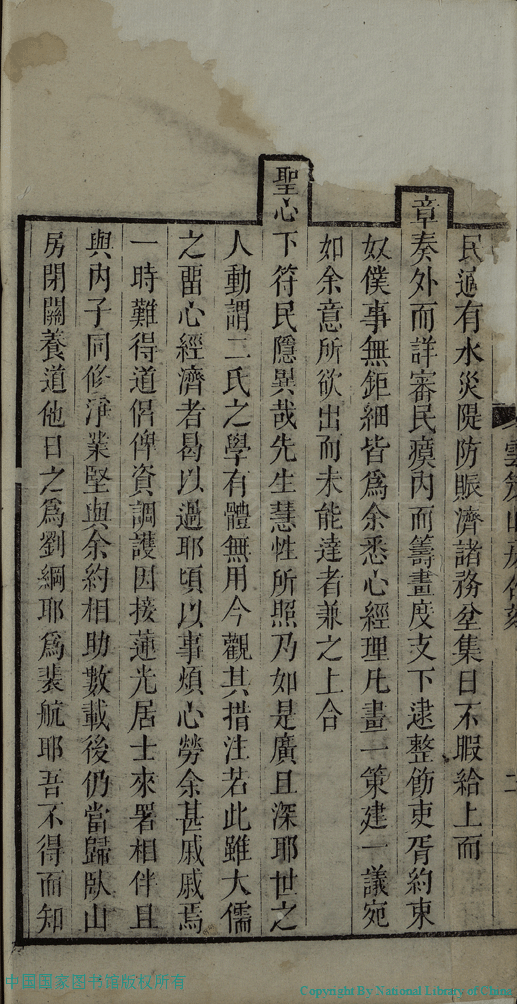 民適有水災隄防賑濟諸務坌集日不暇給上而
章奏外而詳審民瘼內而籌畫度支下逮整飭吏胥約束
奴僕事無鉅細皆為余悉心經理凡畫一策建一議宛
如余意所欲出而未能達者兼之上合
聖心下符民隱異哉先生慧性所照乃如是廣且深耶世之
人動謂二氏之學有體無用今觀其措注若此雖大儒
之畱心經濟者曷以過耶頃以事煩心勞余甚戚戚焉
一時難得道侶俾資調護因接蓮光居士來署相伴且
與內子同修淨業堅與余約相助數載後仍當歸臥山
房閉關養道他日之為劉綱耶為裴航耶吾不得而知
二
中国国家图书馆版权所有
Copyright By National Library of China